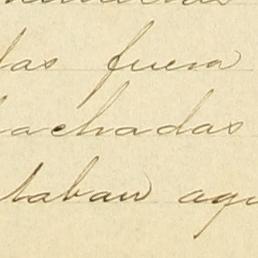 las fuera
achadas
taban aqu